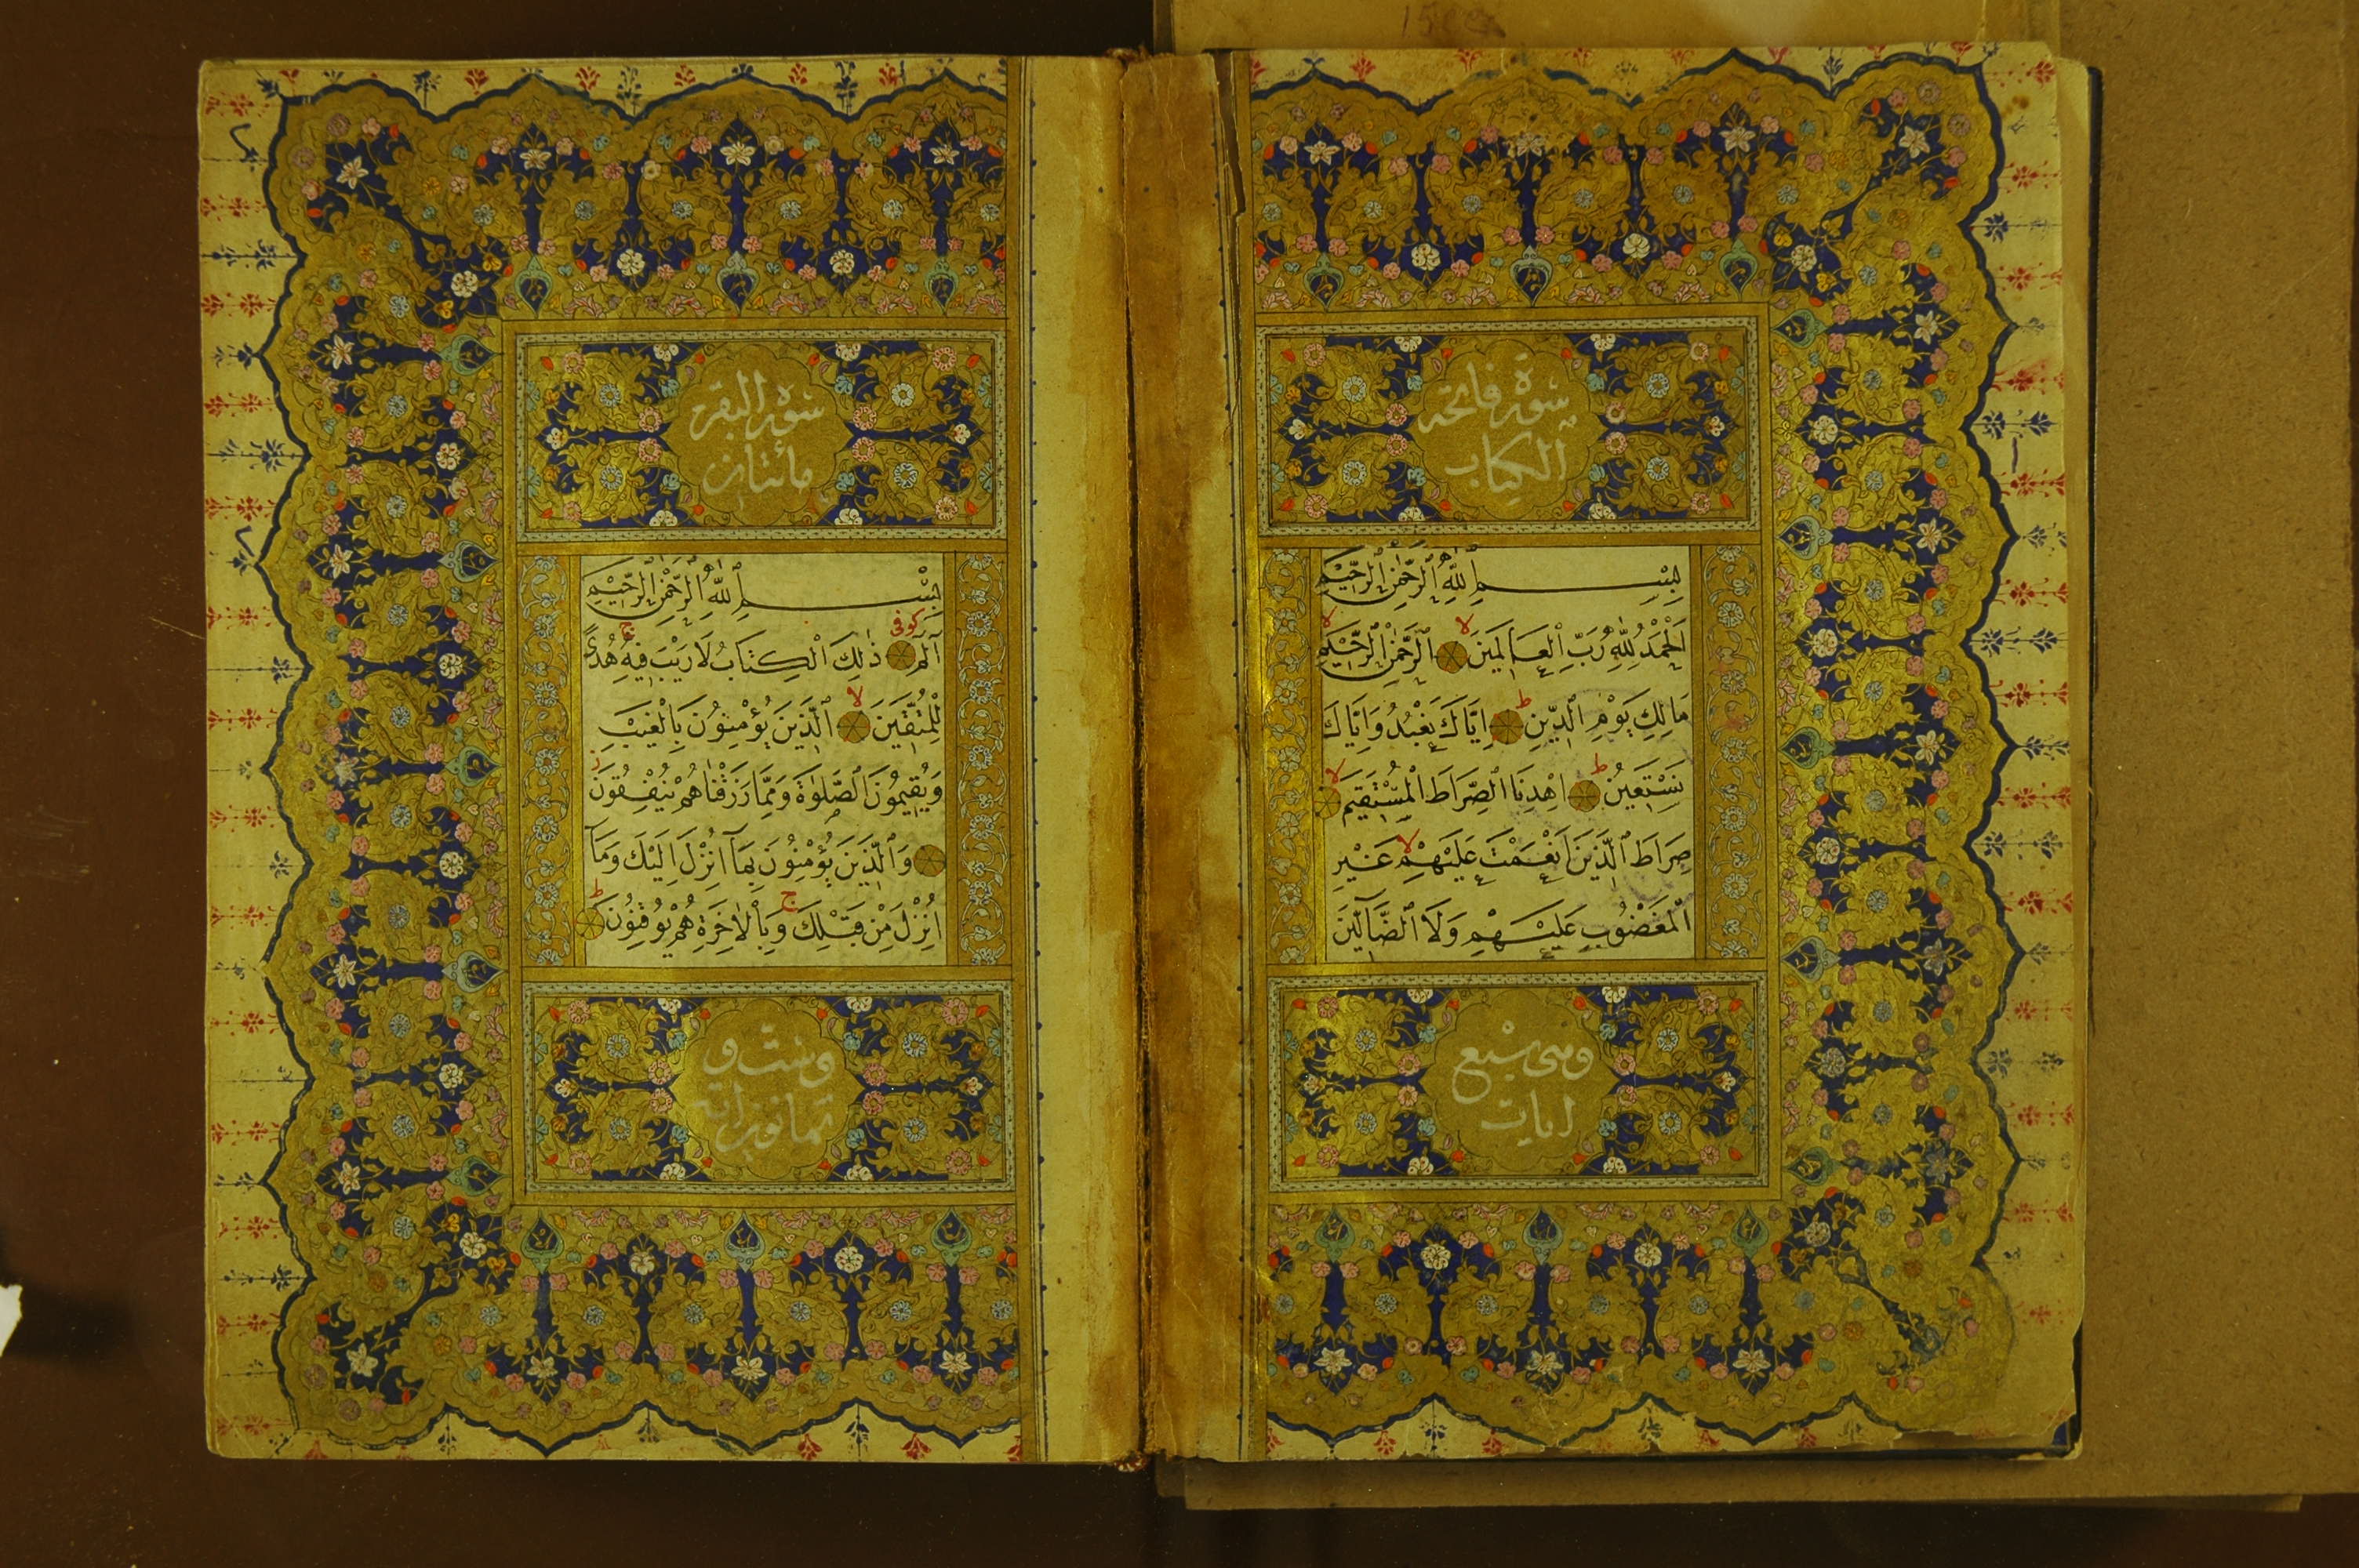 سورة فاتحة
الكتاب
بِسْمِ ٱللَّهِ ٱلرَّحْمٰنِ ٱلرَّحِيْمِ
اَلْحَمْدُ لِلّٰهِ رَبِّ ٱلْعَالَمِيْنَ لا ٱلرَّحْمٰنِ ٱلرَّحِيْمِ لا
مَالِكِ يَوْمِ ٱلدِّيْنِ ط اِيَّاكَ نَعْبُدُ وَاِيَّاكَ
نَسْتَعِيْنُ ط اِهْدِنَا ٱلصِّرَاطَ ٱلْمُسْتَقِيْمَ لا
صِرَاطَ ٱلَّذِيْنَ اَنْعَمْتَ عَلَيْهِمْ لا غَيْرِ
ٱلْمَغْضُوْبِ عَلَيْهِمْ وَلَا ٱلضَّآلِّيْنَ
وهى سبع
ايات
سورة البقرة
مائتان
بِسْمِ ٱللَّهِ ٱلرَّحْمٰنِ ٱلرَّحِيْمِ
آلم كوفى ذٰلِكَ ٱلْكِتَابُ لَا رَيْبَ ج فِيْهِ هُدًى
لِلْمُتَّقِيْنَ لا ٱلَّذِيْنَ يُؤْمِنُوْنَ بِالْغَيْبِ
وَيُقِيْمُوْنَ ٱلصَّلٰوةَ وَمِمَّا رَزَقْنَاهُمْ يُنْفِقُوْنَ
وَٱلَّذِيْنَ يُؤْمِنُوْنَ بِمَآ اُنْزِلَ اِلَيْكَ وَمَآ
اُنْزِلَ مِنْ قَبْلِكَ ج وَبِٱلْاٰخِرَةِ هُمْ يُوْقِنُوْنَ ط
وست و
ثمانون اية